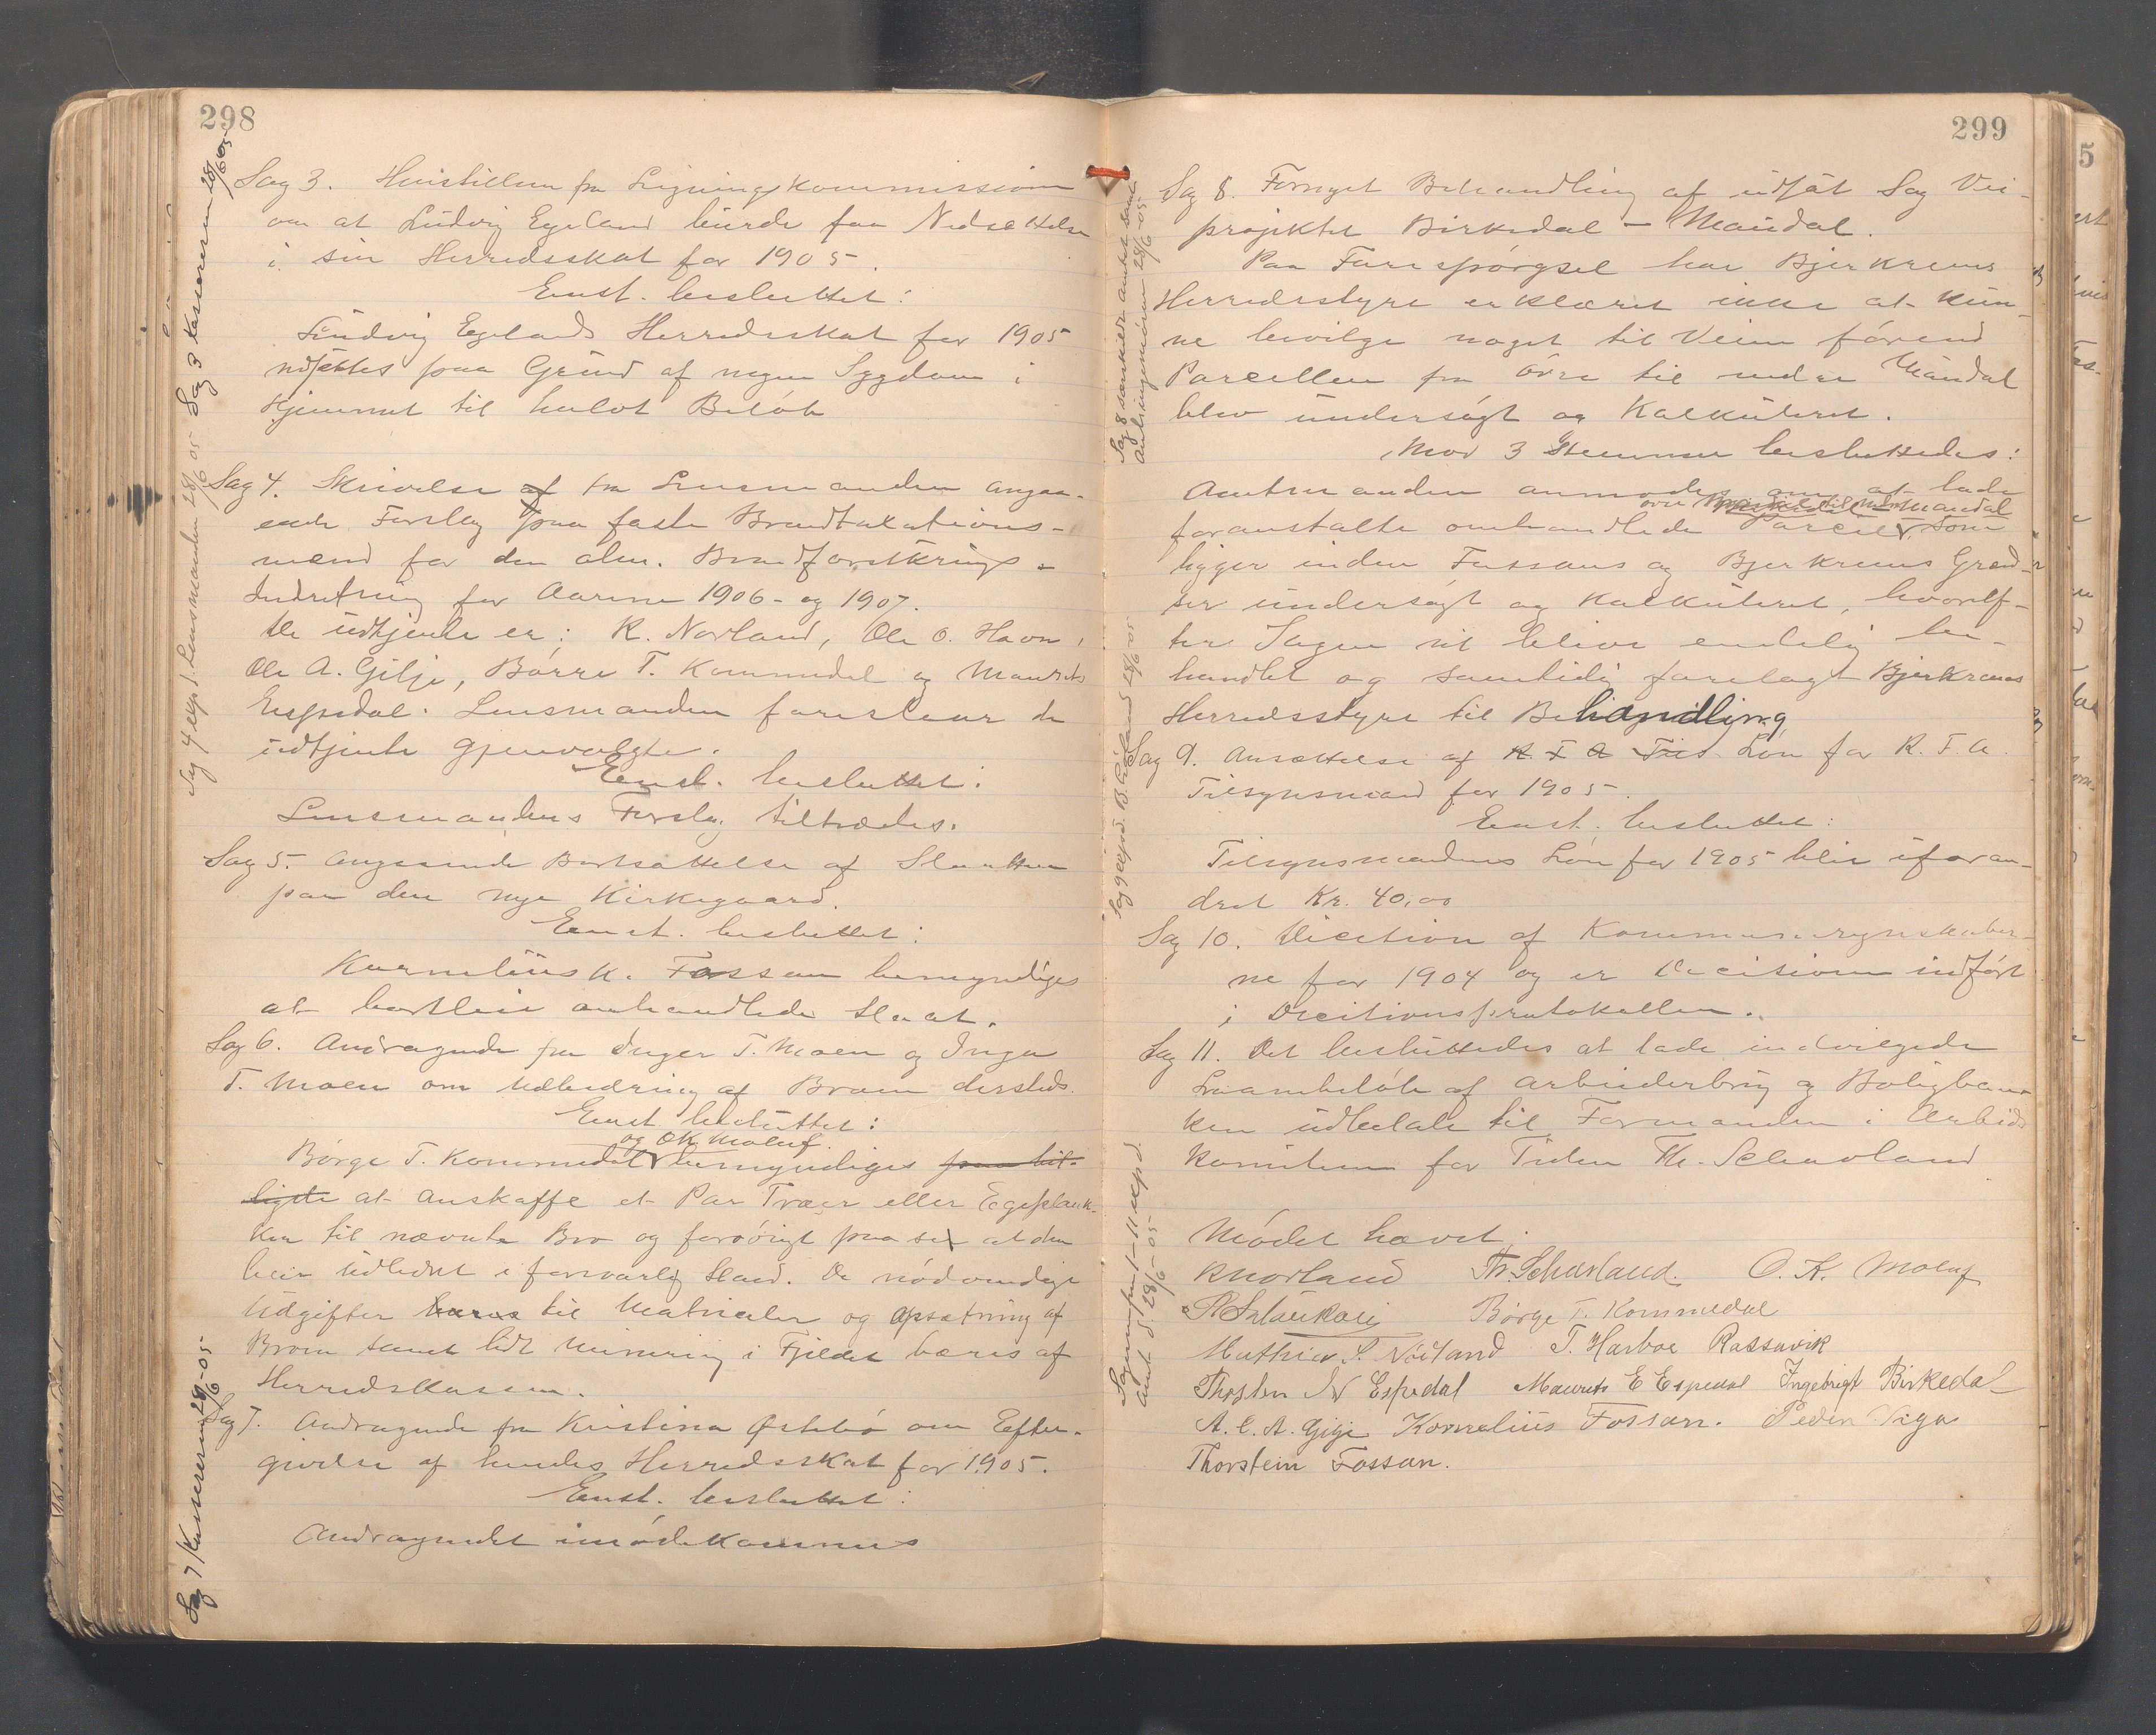 298
Sag 3. Henstillen fra Ligningskommissionen
om at Ludvig Egeland burde faa Nedsættelse
i sin Herredsskat for 1905.
Enst. besluttet:
Ludvig Egelands Herredsskat for 1905
nedsættes paa Grund af megen Sygdom i
Hjemmet til halvt Beløb
Sag 4. Skrivelse af fra Lensmanden angaa-
ende Forslag paa faste Brandtaxations-
mænd for den alm. Brandforsikrings-
Indretning for Aarene 1906- og 1907.
De udtjente er: K. Norland, Ole O. Havn,
Ole A. Gilje, Børre T. Kommedal og Maurits
Espedal. Lensmanden foreslaar de
udtjente gjenvalgte.
Enst. besluttet:
Lensmandens Forslag tiltrædes.
Sag 5. Angaaende Bortsættelse af Slaatten
paa den nye Kirkegaard.
Enst. besluttet:
Kornelius K. Fossan bemyndiges
at bortleie omhandlede Slaat.
Sag 6. Andragende fra Inger T. Moen og Inga
T. Moen om Udbedring af Broen dersteds.
Enst besluttet:
og OK Moluf.
Børge T. Kommedal bemyndiges paa bil-
ligste at anskaffe et Par Træer eller Egeplank-
ker til nævnte Bro og forøvrigt paa se at den
bliir udbedret i forsvarlig Stand. De nødvendige
Udgifter bæres til Materialer og opsætning af
Broen samt lidt Minering i Fjeldet bæres af
Herredskassen.
Sag 7. Andragende fra Kristina Østebø om Efter-
givelse af hendes Herredsskat for 1905.
Enst. besluttet:
Andragendet imødekommes
Sag 3 kassereren 28/6 05-
Sag 4 exp. t. Lensmanden 28/6 05
Sag 7 Kassereren 28/6-05-
299
Sag 8. Fornyet Behandling af udsat Sag Vei-
projektet Birkedal - Maudal.
Paa Forespørgsel har Bjerkreims
Herredsstyre erklæret ikke at kun-
ne bevilge noget til Veien førend
Parcellen fra øvre til nedre Maudal
blev undersøgt og kalkuleret.
Mod 3 Stemmer besluttedes:
Amtmanden anmodes om at lade
øvre til nedre Maudal
foranstalte omhandlede Parcel som
ligger inden Fossans og Bjerkreims Grænd-
ser undersøgt og kalkuleret, hvoref-
ter Sagen vil blive endelig be-
handlet og samtidig forelagt Bjerkreims
Herredsstyre til Behandling
Sag 9. Ansættelse af R F A Løn for R. F. A.
Tilsynsmand for 1905.
Enst. besluttet:
Tilsynsmandens Løn for 1905 blir uforan-
dret Kr. 40,00
Sag 10. Decition af Kommuneregnskaber-
ne for 1904 og er Decitionen indført
i Decitionsprotokollen.
Sag 11. Det besluttedes at lade indvilgede
Laanebeløb af Arbeiderbrug og Boligban-
ken udbetale til Formanden i Arbeids
komiteen for Tiden Th. Schavland
Mødet hævet.
KNorland Th. Schavland. O. K. Moluf
Børge T. Kommedal
Mathias S. Nørland T. Harboe Rossavik
Thosten N Espedal Maurits E Espedal Ingebrigt Birkedal
A. E. A. Gilje Kornelius Fossan. Peder Vaga
Thorstein Fossan.
Sag 9 expd. 28/6-05
28/6-05